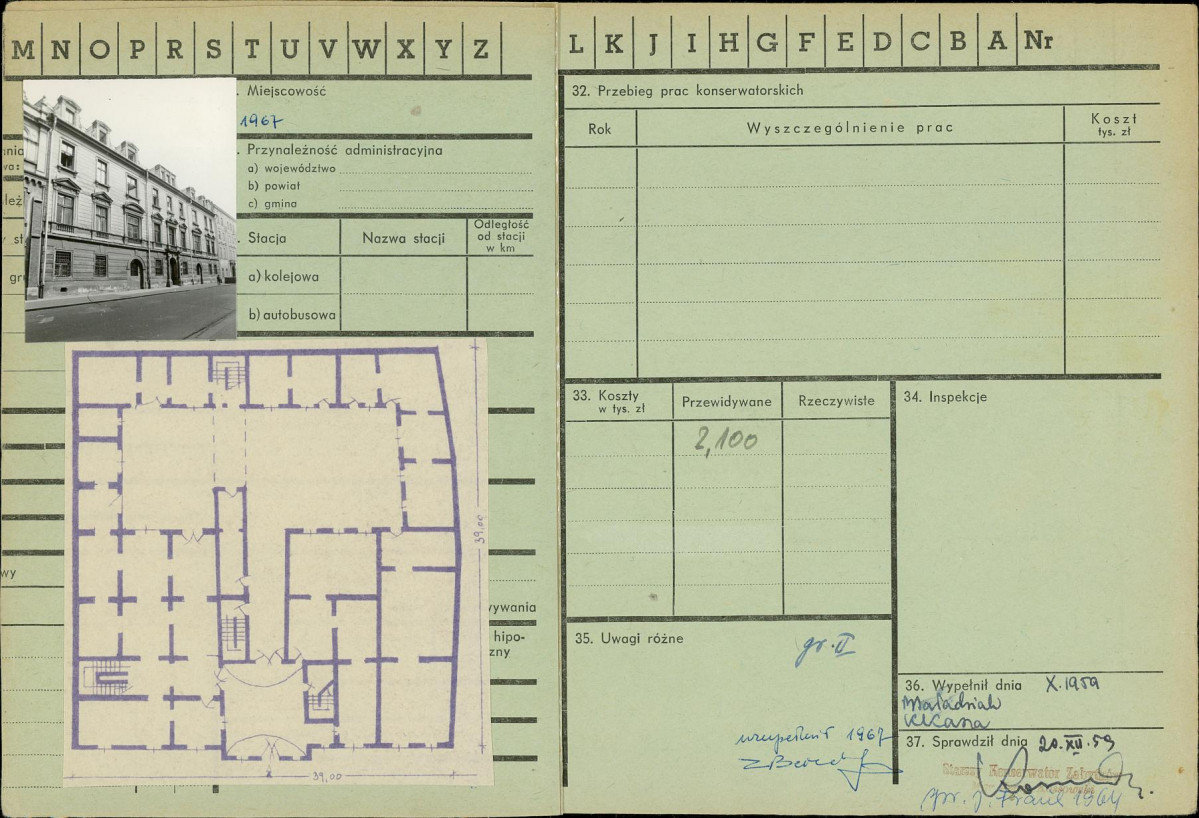 M N O P R S T U V W X Y Z
. Miejscowość
1967
. Przynależność administracyjna
a) województwo
b) powiat
c) gmina
. Stacja
Nazwa stacji
Odległość
od stacji
w km
a) kolejowa
b) autobusowa
wy
wywania
hipo-
zny
39,00
39,00
L K J I H G F E D C B A Nr
32. Przebieg prac konserwatorskich
Rok
Wyszczególnienie prac
Koszt
tys. zł
33. Koszty
w tys. zł
Przewidywane
Rzeczywiste
2,100
34. Inspekcje
35. Uwagi różne
gr. II
uzupełnił 1967
36. Wypełnił dnia X.1959
37. Sprawdził dnia 20.XII.59
Konserwator
1964